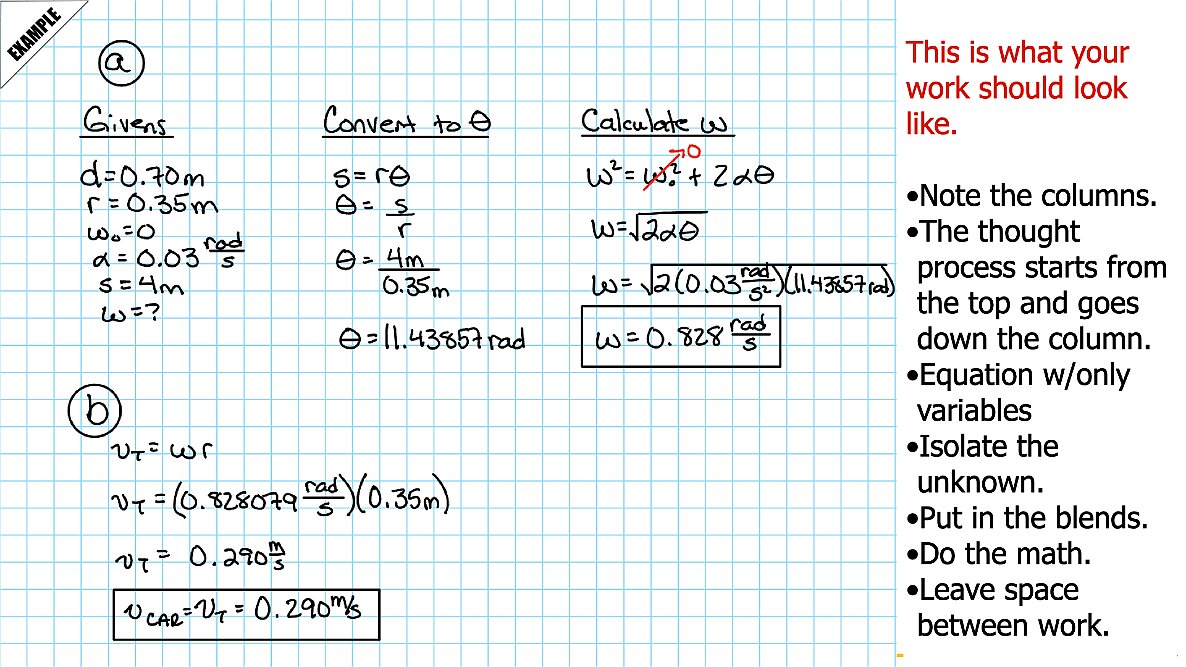 EXAMPLE
a
Givens
d=0.70m
r=0.35m
ω₀=0
α=0.03 rad/s
s=4m
ω=?
Convert to θ
s=rθ
θ= s/r
θ= 4m/0.35m
θ=11.43857rad
Calculate ω
ω²=ω₀²→0 + 2αθ
ω=√2αθ
ω=√2(0.03 rad/s²)(11.43857rad)
ω=0.828 rad/s
b
v_T=ωr
v_T=(0.828079 rad/s)(0.35m)
v_T= 0.290 m/s
v_CAR=v_T=0.290 m/s
This is what your
work should look
like.
•Note the columns.
•The thought
process starts from
the top and goes
down the column.
•Equation w/only
variables
•Isolate the
unknown.
•Put in the blends.
•Do the math.
•Leave space
between work.